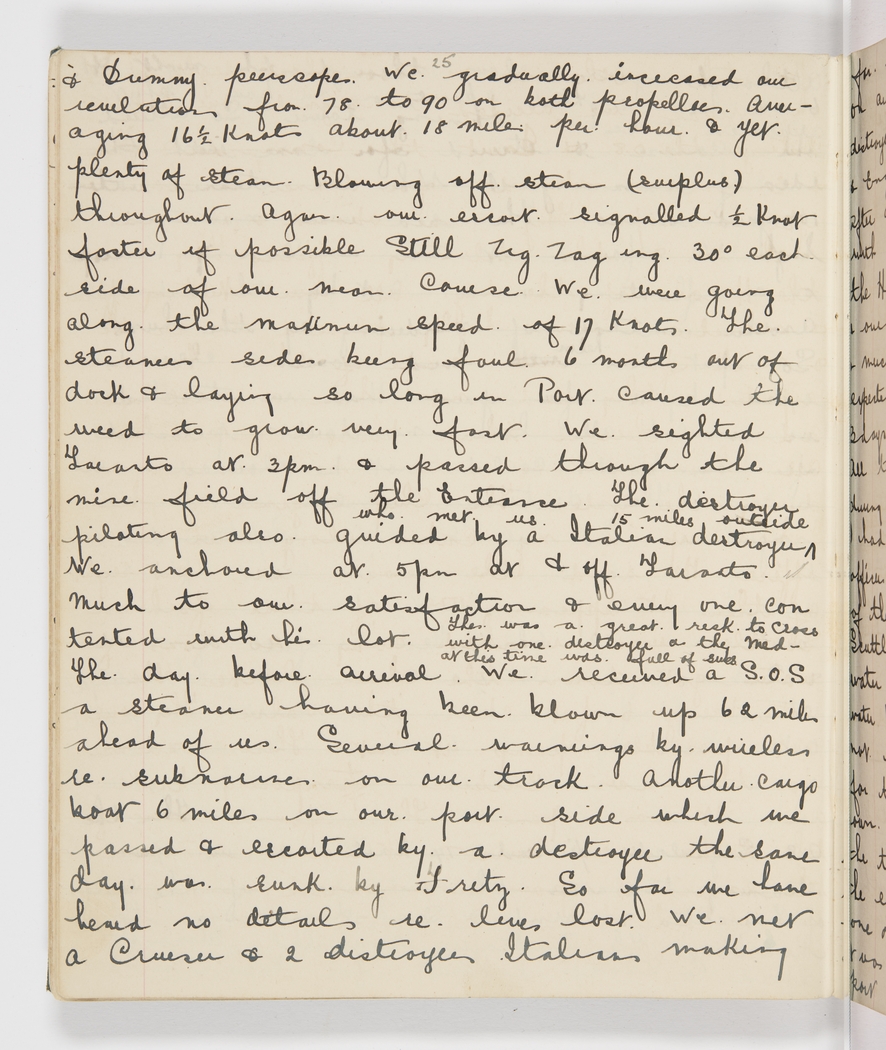 25
& Dummy. peerscopes. We. gradually. increased our
revelutions from. 78. to 90 on both propellors. Aver-
aging 16½ Knots about. 18 miles per. hour. & yet.
plenty of steam. Blowing off. steam (surplus)
throughout. Again. our. escort. signalled ½ Knot
faster if possible Still Zig. Zag ing. 30° each.
side of our. mean. Course. We. were going
along. the maximum speed. of 17 Knots. The.
steamers sides being foul. 6 months out of
dock & laying so long in Port. caused the
weed to grow. very. fast. We. sighted
Taranto at. 3pm. & passed through the
mine. field off the Entrance. The. destroyer
who. met. us. 15 miles outside
piloting also. guided by a Italian destroyer ^
We. anchored at. 5pm at & off. Taranto.
Much to our. satisfaction & every one. con
tented with his. lot.
This. was a. great. risk. to cross
with one. destroyer a the Med-
at this time was. full of subs
The. day. before. arrival. We. received a S.O.S
a steamer having been. blown up 62 miles
ahead of us. Several. warnings by. wireless
re. submarines. on our. track. Another. cargo
boat 6 miles on our. port. side which we
passed & escorted by. a. destroyer the same
day. was. sunk. by Fretz. So far we have
heard no details re. lives lost. We met
a Cruiser & 2 distroyers Italians making